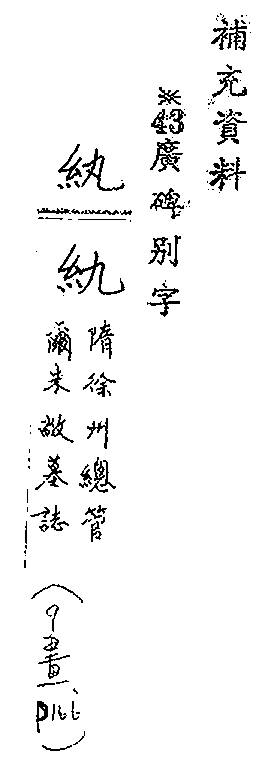 補充資料
※43廣碑別字
紈
糺
隋徐州總管
爾朱敞墓誌
(9畫、P166)